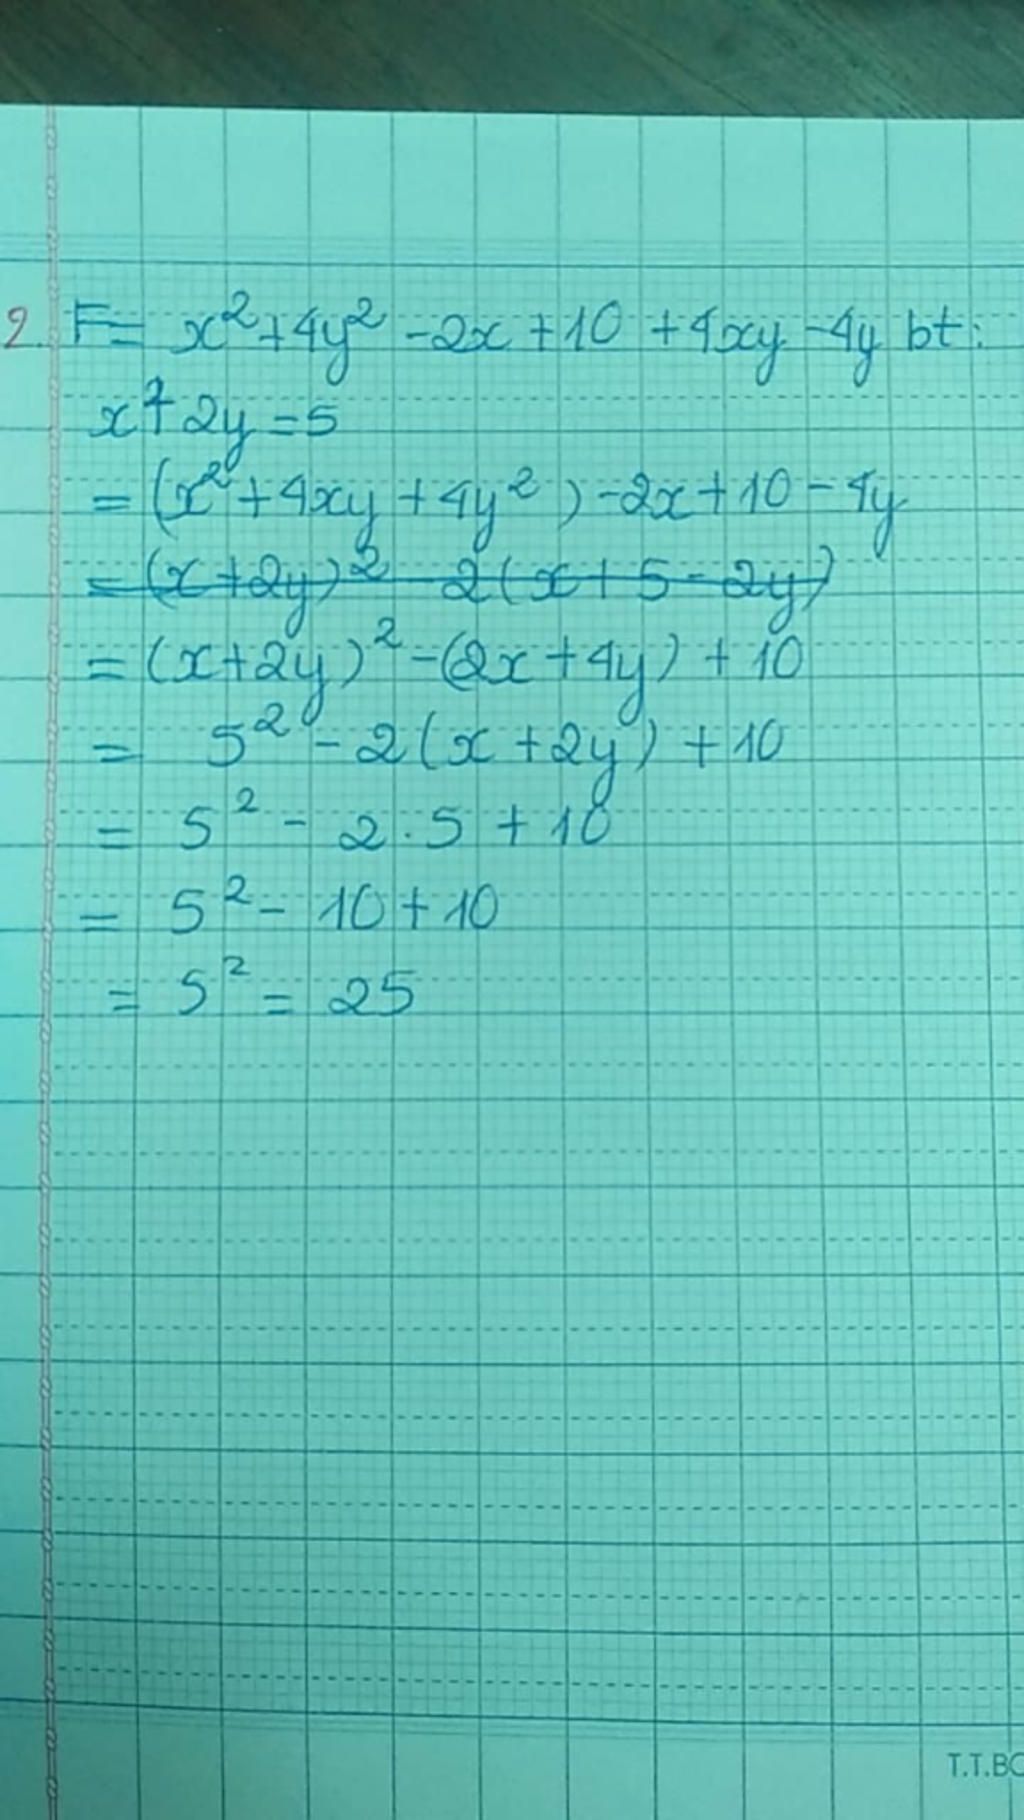 2. F = x² + 4y² - 2x + 10 + 4xy - 4y bt:
x + 2y = 5
= (x² + 4xy + 4y²) - 2x + 10 - 4y
= (x + 2y)² - 2(x + 5 - 2y)
= (x + 2y)² - (2x + 4y) + 10
= 5² - 2(x + 2y) + 10
= 5² - 2 . 5 + 10
= 5² - 10 + 10
= 5² = 25